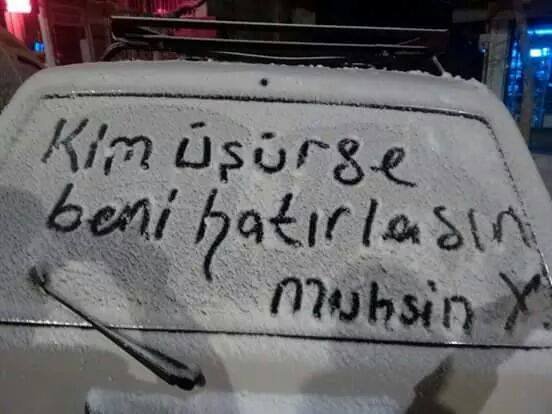 Kim üşürse
beni hatırlasın
muhsin Y.